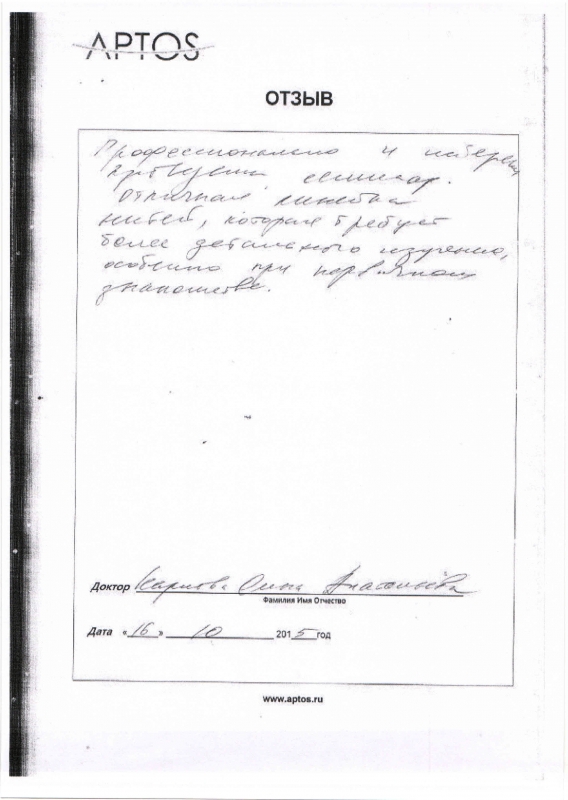 APTOS
ОТЗЫВ
Профессионально и интересно
проведен семинар.
Отличная линейка
нитей, которая требует
более детального изучения,
особенно при первичном
знакомстве.
Доктор Карпова
Фамилия Имя Отчество
Дата «16» 10 2015 год
www.aptos.ru